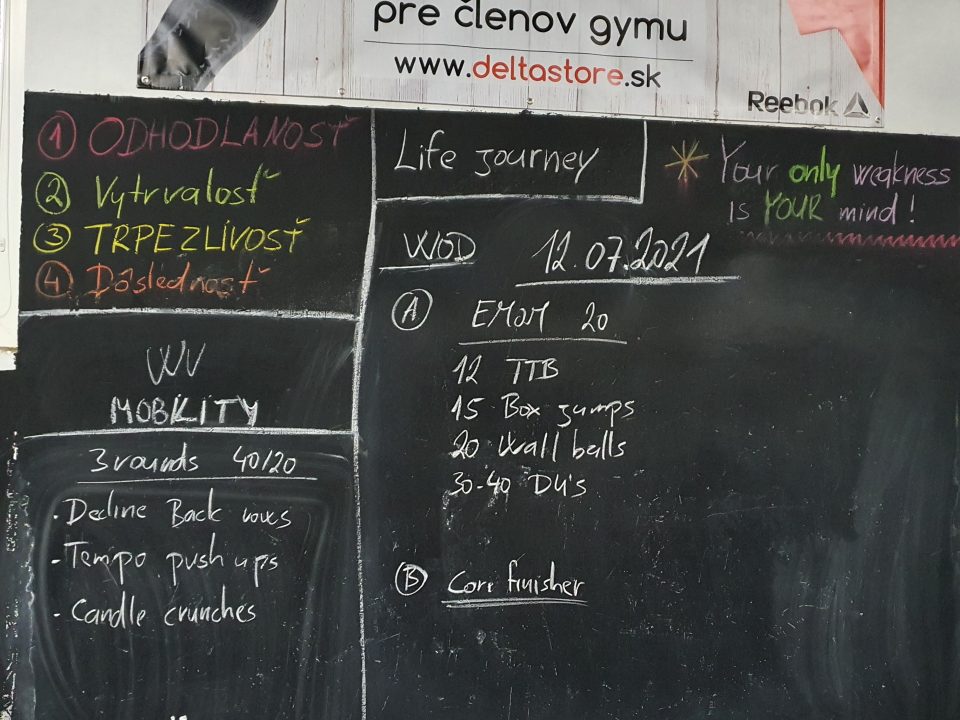 pre členov gymu
www.deltastore.sk
Reebok
① ODHODLANOSŤ
② Vytrvalosť
③ TRPEZLÍVOSŤ
④ Dôslednosť
WV
MOBILITY
3 rounds 40/20
- Decline Back rows
- Tempo push ups
- Candle crunches
Life journey
* Your only weakness
is YOUR mind!
WOD 12.07.2021
Ⓐ EMOM 20
12 TTB
15 Box jumps
20 Wall balls
30-40 DU's
Ⓑ Core finisher